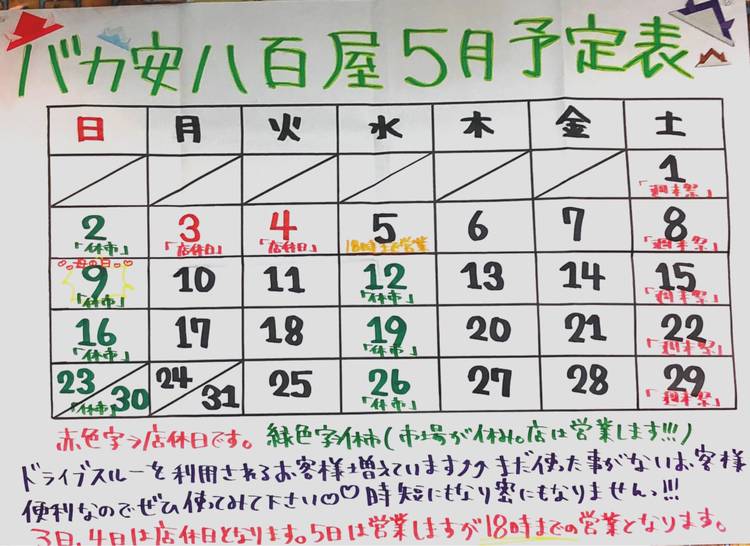 バカ安八百屋5月予定表
日 月 火 水 木 金 土
1
「週末祭」
2 3 4 5 6 7 8
「休市」 「店休日」 「店休日」 18時まで営業 「週末祭」
母の日
9 10 11 12 13 14 15
「休市」 「休市」 「週末祭」
16 17 18 19 20 21 22
「休市」 「休市」 「週末祭」
23 30 24 31 25 26 27 28 29
「休市」 「休市」 「週末祭」
赤色字→店休日です。緑色字休市(市場が休み。店は営業します!!!)
ドライブスルーを利用されるお客様増えています⤴⤴まだ使った事がないお客様
便利なのでぜひ使ってみて下さい♡♡時短にもなり密にもなりませんっ!!!
3日、4日は店休日となります。5日は営業しますが18時までの営業となります。